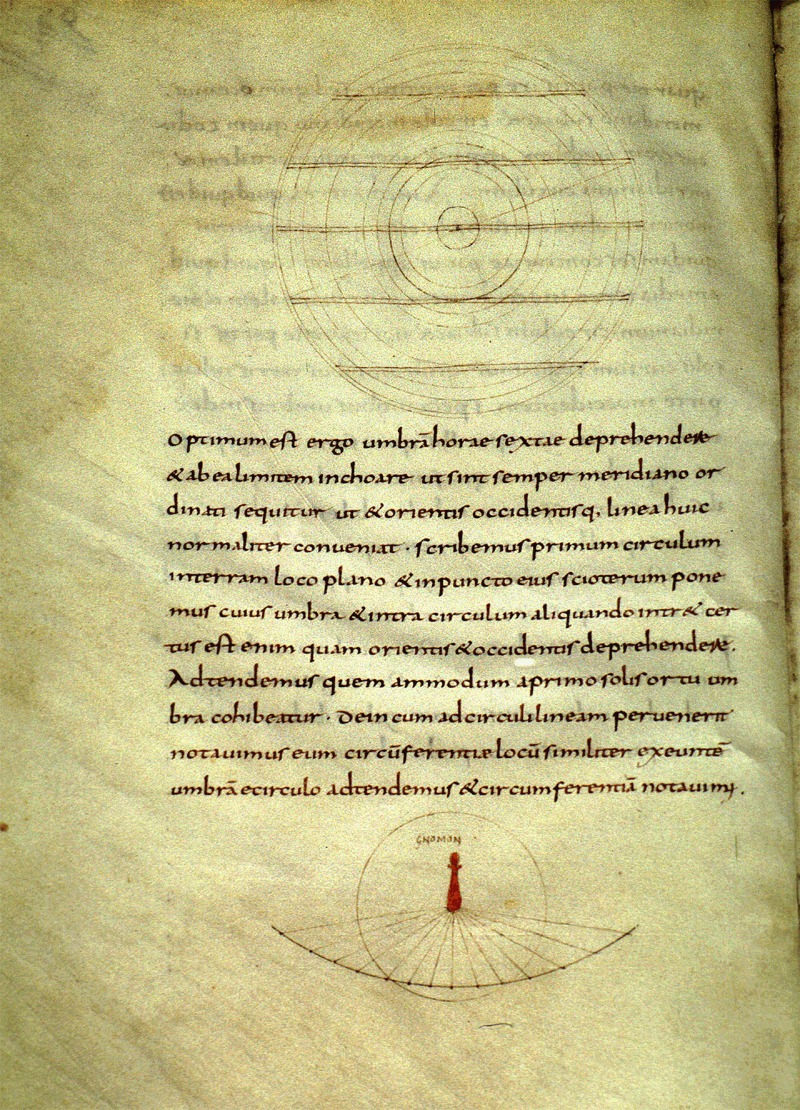 Optimum est ergo umbrā horae sextae deprehendere
& ab ea limitem inchoare ut sint semper meridiano or
dinati sequitur ut & orientis occidentisq; linea huic
normaliter conveniat · scribemus primum circulum
in terram loco plano & in puncto eius scioterum pone
mus cuius umbra & intra circulum aliquando intr& cer
tus est enim quam orientis & occidentis deprehendere.
Adtendemus quem ammodum a primo solis ortu um
bra cohibeatur · Dein cum ad circuli lineam pervenerit
notavimus eum circūferentiæ locū similiter exeuntē
umbrā e circulo adtendemus & circumferentiā notavimꝰ.
GNOMON